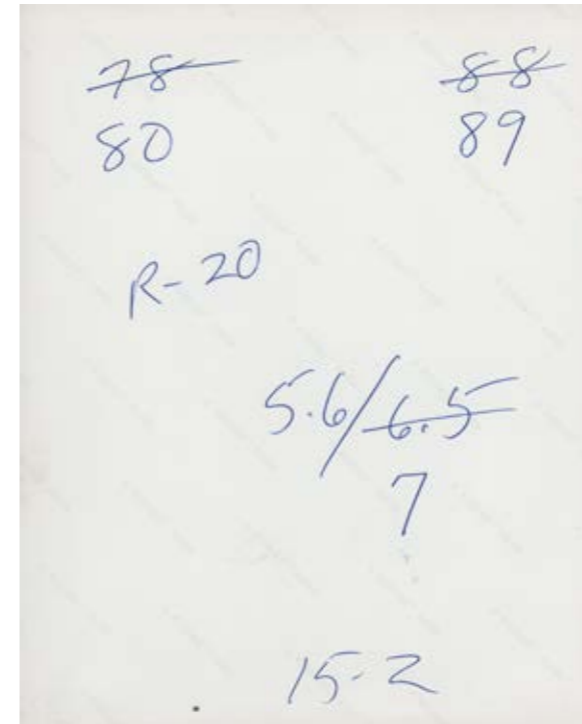 78 88
80 89
R-20
5.6/6.5
7
15-2